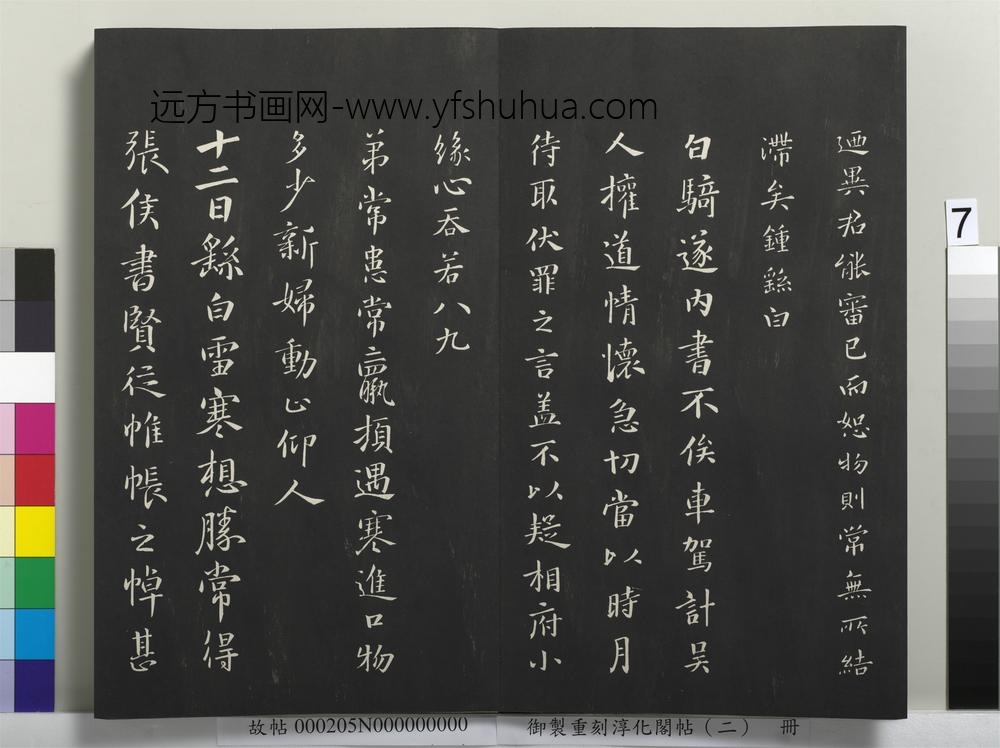 迺異君能審已而恕物則常無所結
滯矣鍾繇白
白騎遂內書不俟車駕計吳
人擁道情懷急切當以時月
待取伏罪之言盖不以疑相府小
緣心吞若八九
弟常患常羸損遇寒進口物
多少新婦動止仰人
十二日繇白雪寒想勝常得
張侯書賢從帷帳之悼甚
远方书画网-www.yfshuhua.com
7
故帖 000205N000000000 御製重刻淳化閣帖（二） 冊